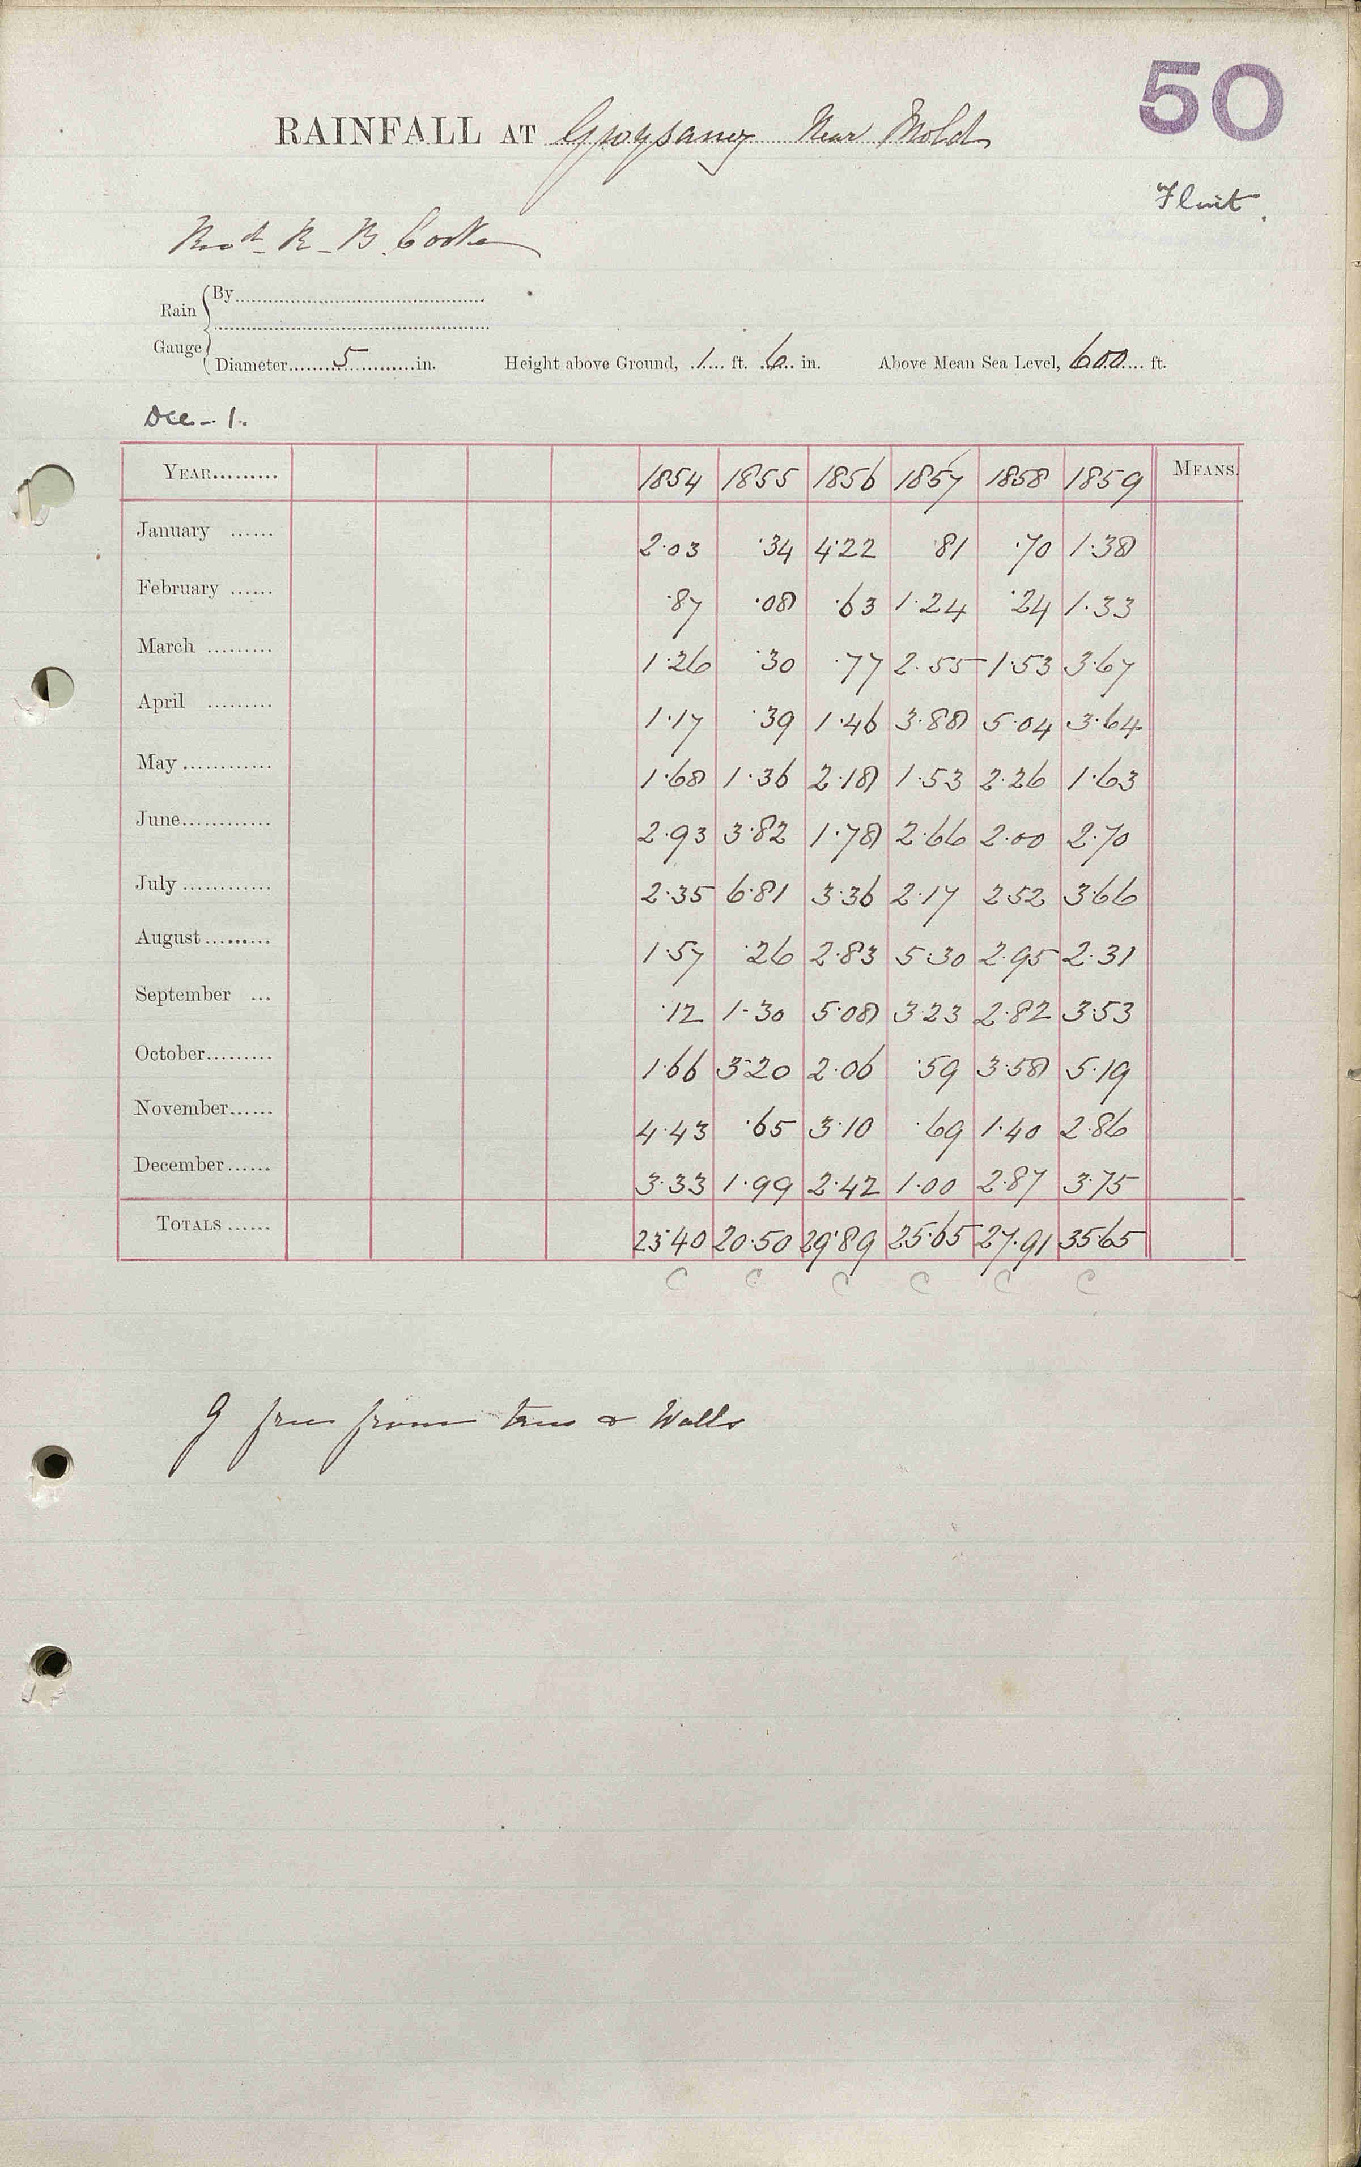 50
RAINFALL AT Gwysaney Near Mold
Flint.
Revd. R. B. Cooke
Rain Gauge
By
Diameter 5 in. Height above Ground, 1 ft. 6 in. Above Mean Sea Level, 600 ft.
Dec - 1.
YEAR 1854 1855 1856 1857 1858 1859 MEANS.
January 2.03 .34 4.22 .81 .70 1.38
February .87 .08 .63 1.24 .24 1.33
March 1.26 .30 .77 2.55 1.53 3.67
April 1.17 .39 1.46 3.88 5.04 3.64
May 1.68 1.36 2.18 1.53 2.26 1.63
June 2.93 3.82 1.78 2.66 2.00 2.70
July 2.35 6.81 3.36 2.17 2.52 3.66
August 1.57 .26 2.83 5.30 2.95 2.31
September .12 1.30 5.08 3.23 2.82 3.53
October 1.66 3.20 2.06 .59 3.58 5.19
November 4.43 .65 3.10 .69 1.40 2.86
December 3.33 1.99 2.42 1.00 2.87 3.75
TOTALS 23.40 20.50 29.89 25.65 27.91 35.65
C C C C C C
g free from trees & Walls